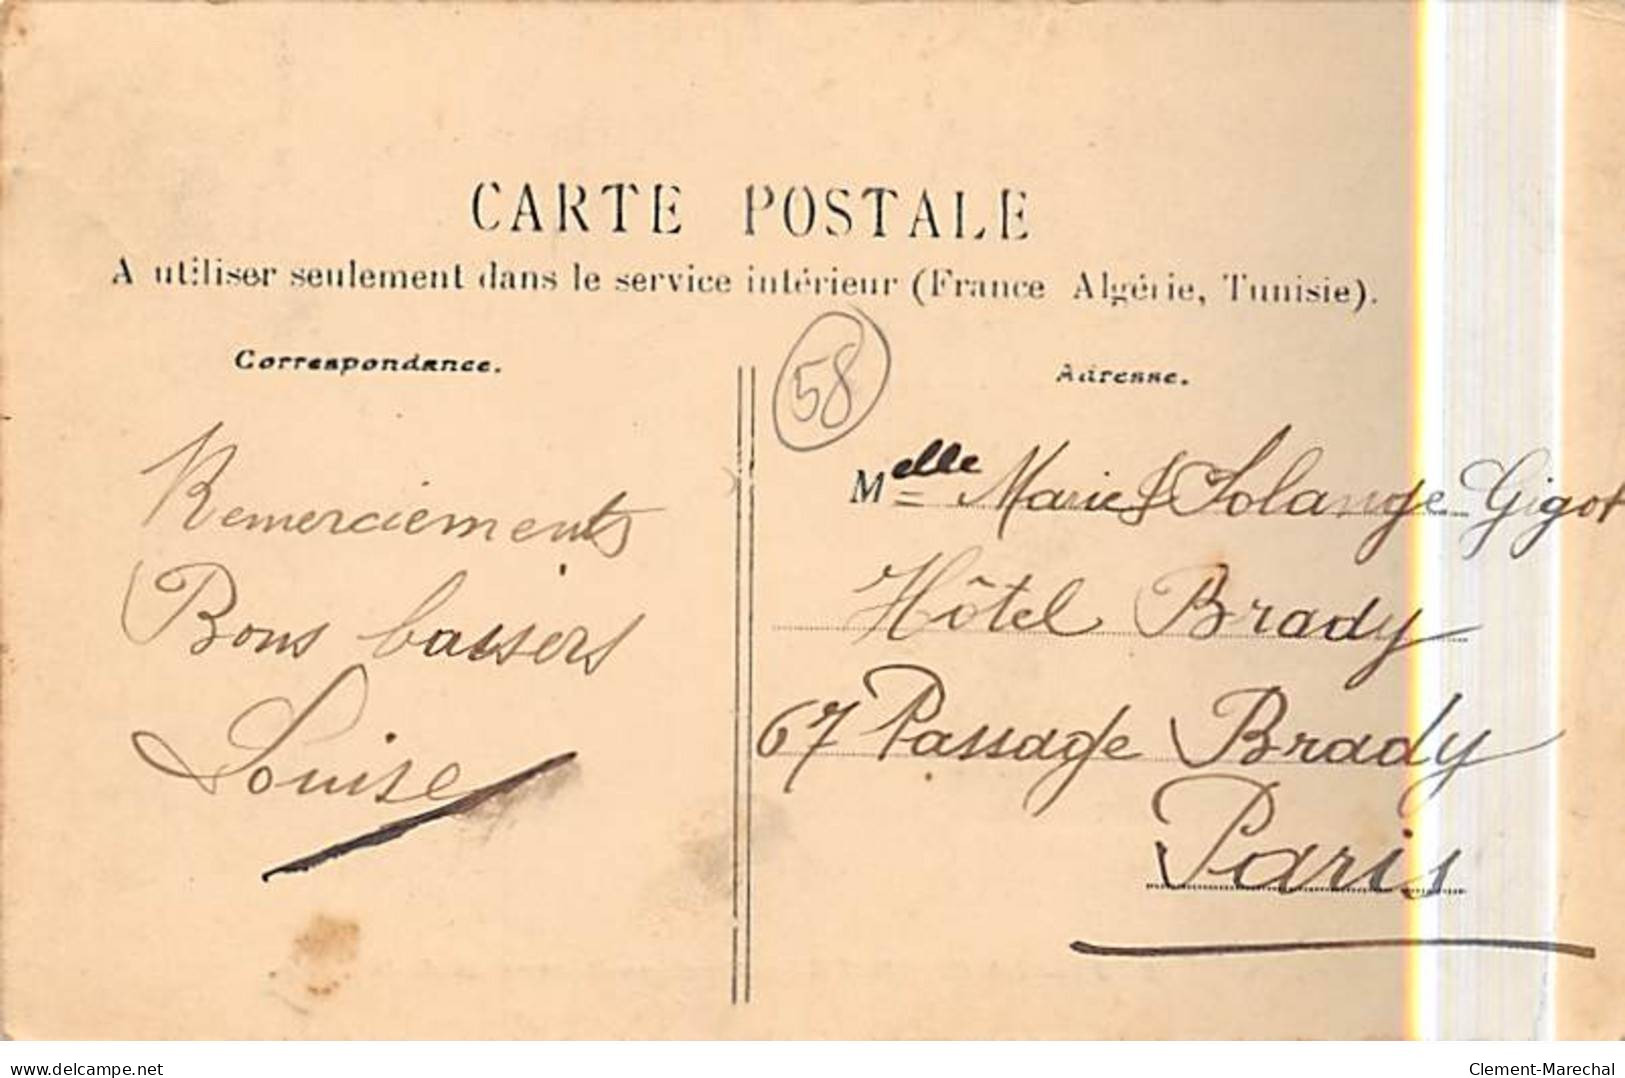 CARTE POSTALE
A utiliser seulement dans le service intérieur (France Algérie, Tunisie).
Correspondance.
Adresse.
58
Remerciements
Bons baisers
Louise
Melle Marie & Solange Gigot
Hôtel Brady
67 Passage Brady
Paris
www.delcampe.net
Clement-Marechal